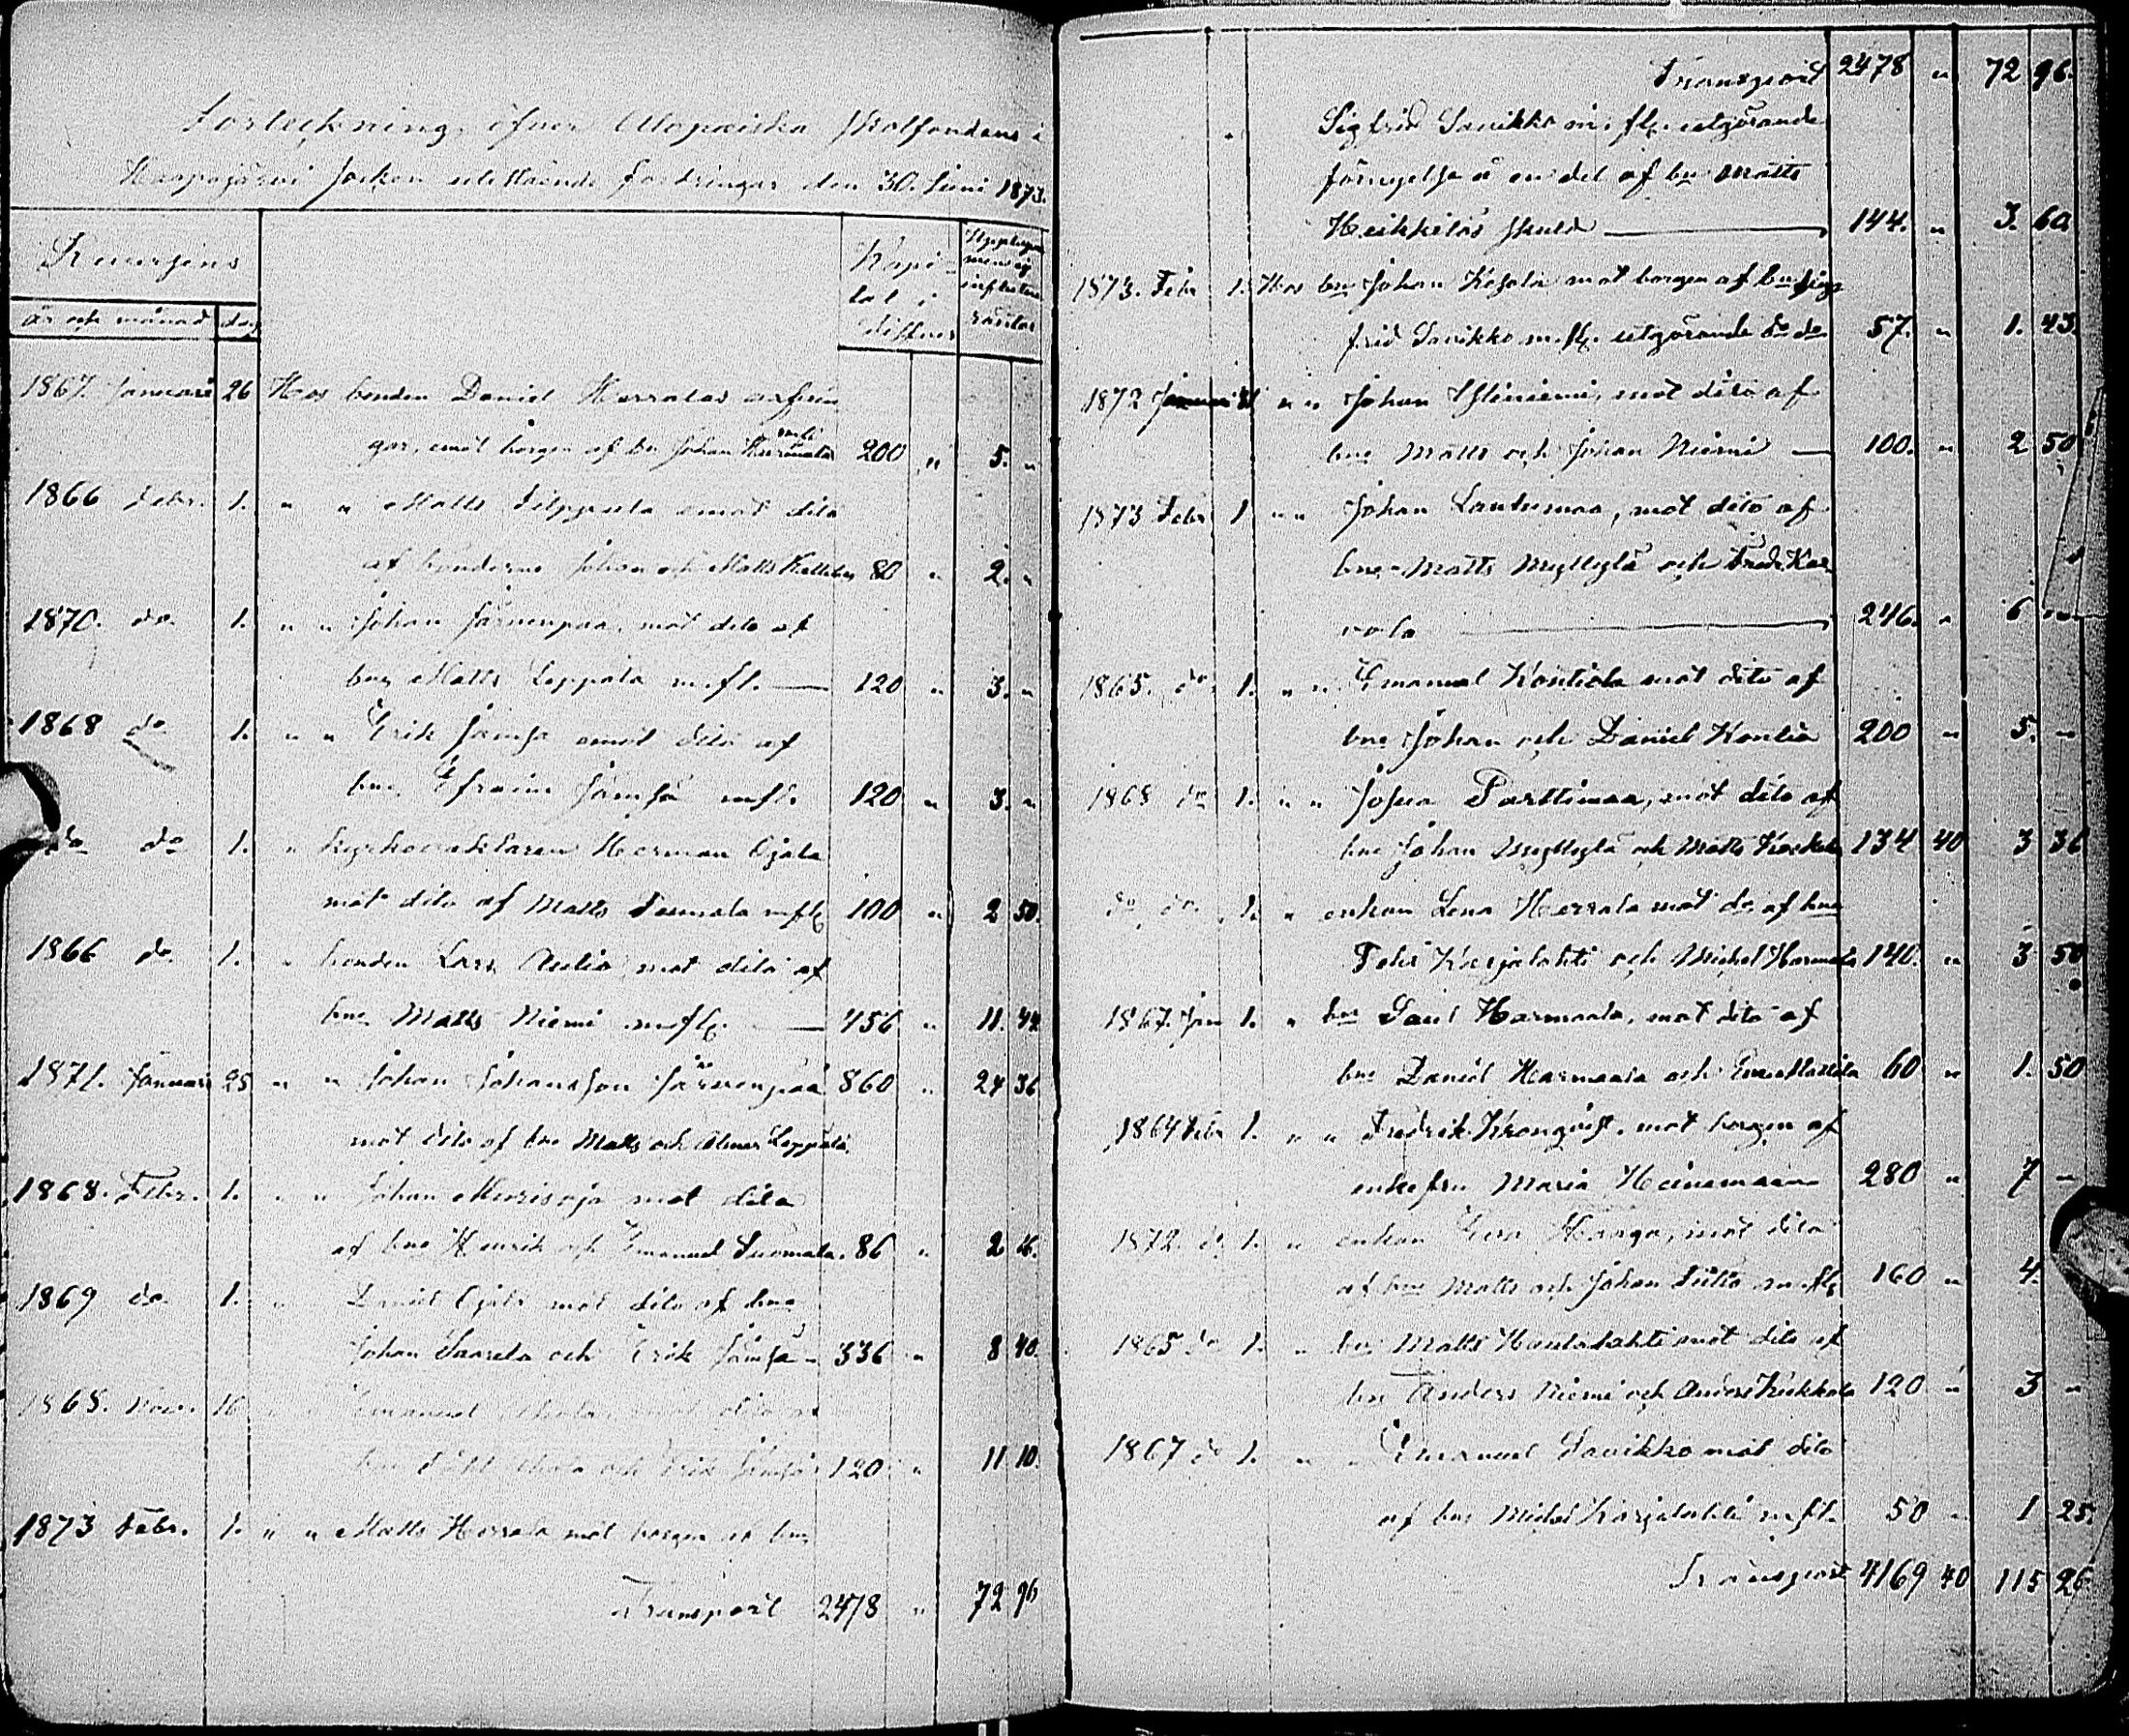 Förteckning öfver Alopæiska Skolfondens i
Haapajärvi Socken utestående fordringar den 30. Juni 1873.
Reversens
år och månad dag
Kapi-
tal i
Upplupna
men ej
influtna
räntor
1867. Januari 26 Hos bonden Daniel Herralas arfvin
gar, emot borgen af bn Johan 200 " 5. "
1866 Febr. 1. " " Matts Filppula emot dito
af bönderne Johan och Matts 80 " 2. "
1870. do 1. " " Johan Järvenpää, mot dito af
bne Matts Leppälä m. fl. — 120 " 3. "
1868 do 1. " " Erik Jämsä emot dito af
bne Efraim Jämsä m. fl. 120 " 3. "
do do 1. " kyrkovaktaren Herman Ojala
mot dito af Matts m. fl. 100 " 2 50.
1866 do 1. " bonden Lars Autio mot dito af
bne Matts Niemi m. fl. — 456 " 11.
1871. Januari 25 " " Johan Johansson Järvenpää 860 " 24 36
mot dito af bne Matts och Leppälä.
1868. Febr. 1. " " Johan mot dito
af bne Henrik och Emanuel Tuomala. 86 " 2
1869 do 1. " Daniel Ojala mot dito af bne
Johan Saarela och Erik Jämsä 336 " 8 40.
1868. Nov. 16 " " Emanuel mot dito af
bne och Erik Jämsä 120 " 11 10.
1873 Febr. 1. " " Matts Herrala mot borgen af bne
Transport 2478 " 72 96
Transport 2478 " 72 96.
Sigfrid Savikko m. fl. utgörande
förnyelse å en del af bn Matts
Heikkiläs skuld — 144. " 3. 60
1873. Febr 1. Hos bn Johan Kesola mot borgen af bn Sig
frid Savikko m. fl. utgörande do do 57. " 1. 43
1872 Januari " " Johan Yliniemi, mot dito af
bne Matts och Johan Niemi — 100. " 2 50
1873 Febr 1 " " Johan Lautumaa, mot dito af
bne Matts Myllylä och Fredr. Kar
vola — 246. " 6
1865. do 1. " " Emanuel Kontiola mot dito af
bne Johan och Daniel Kontio 200 " 5. "
1868 do 1. " " Josua Parttimaa, mot dito af
bne Johan Myllylä och Matts 134 40 3 36
do do. 1. " enkan Lena Herrala mot do af bne
Karjalahti och Michel Harmaala 140. " 3 50
1867. Jan 1. " bn Paul Harmaala, mot dito af
bne Daniel Harmaala och 60 " 1. 50
1864 Febr 1. " " Fredrik Kronqvist, mot borgen af
enkefru Maria Heineman 280 " 7 "
1872. do 1. " enkan mot dito
af bne Matts och Johan m. fl. 160 " 4.
1865 do 1. " bn Matts Hautalahti mot dito af
bne Anders Niemi och Anders Kukkola 120 " 3 "
1867 do 1. " " Emanuel Savikko mot dito
af bne Michel Karjalahti m. fl. 50 " 1 25.
Transport 4169 40 115 26